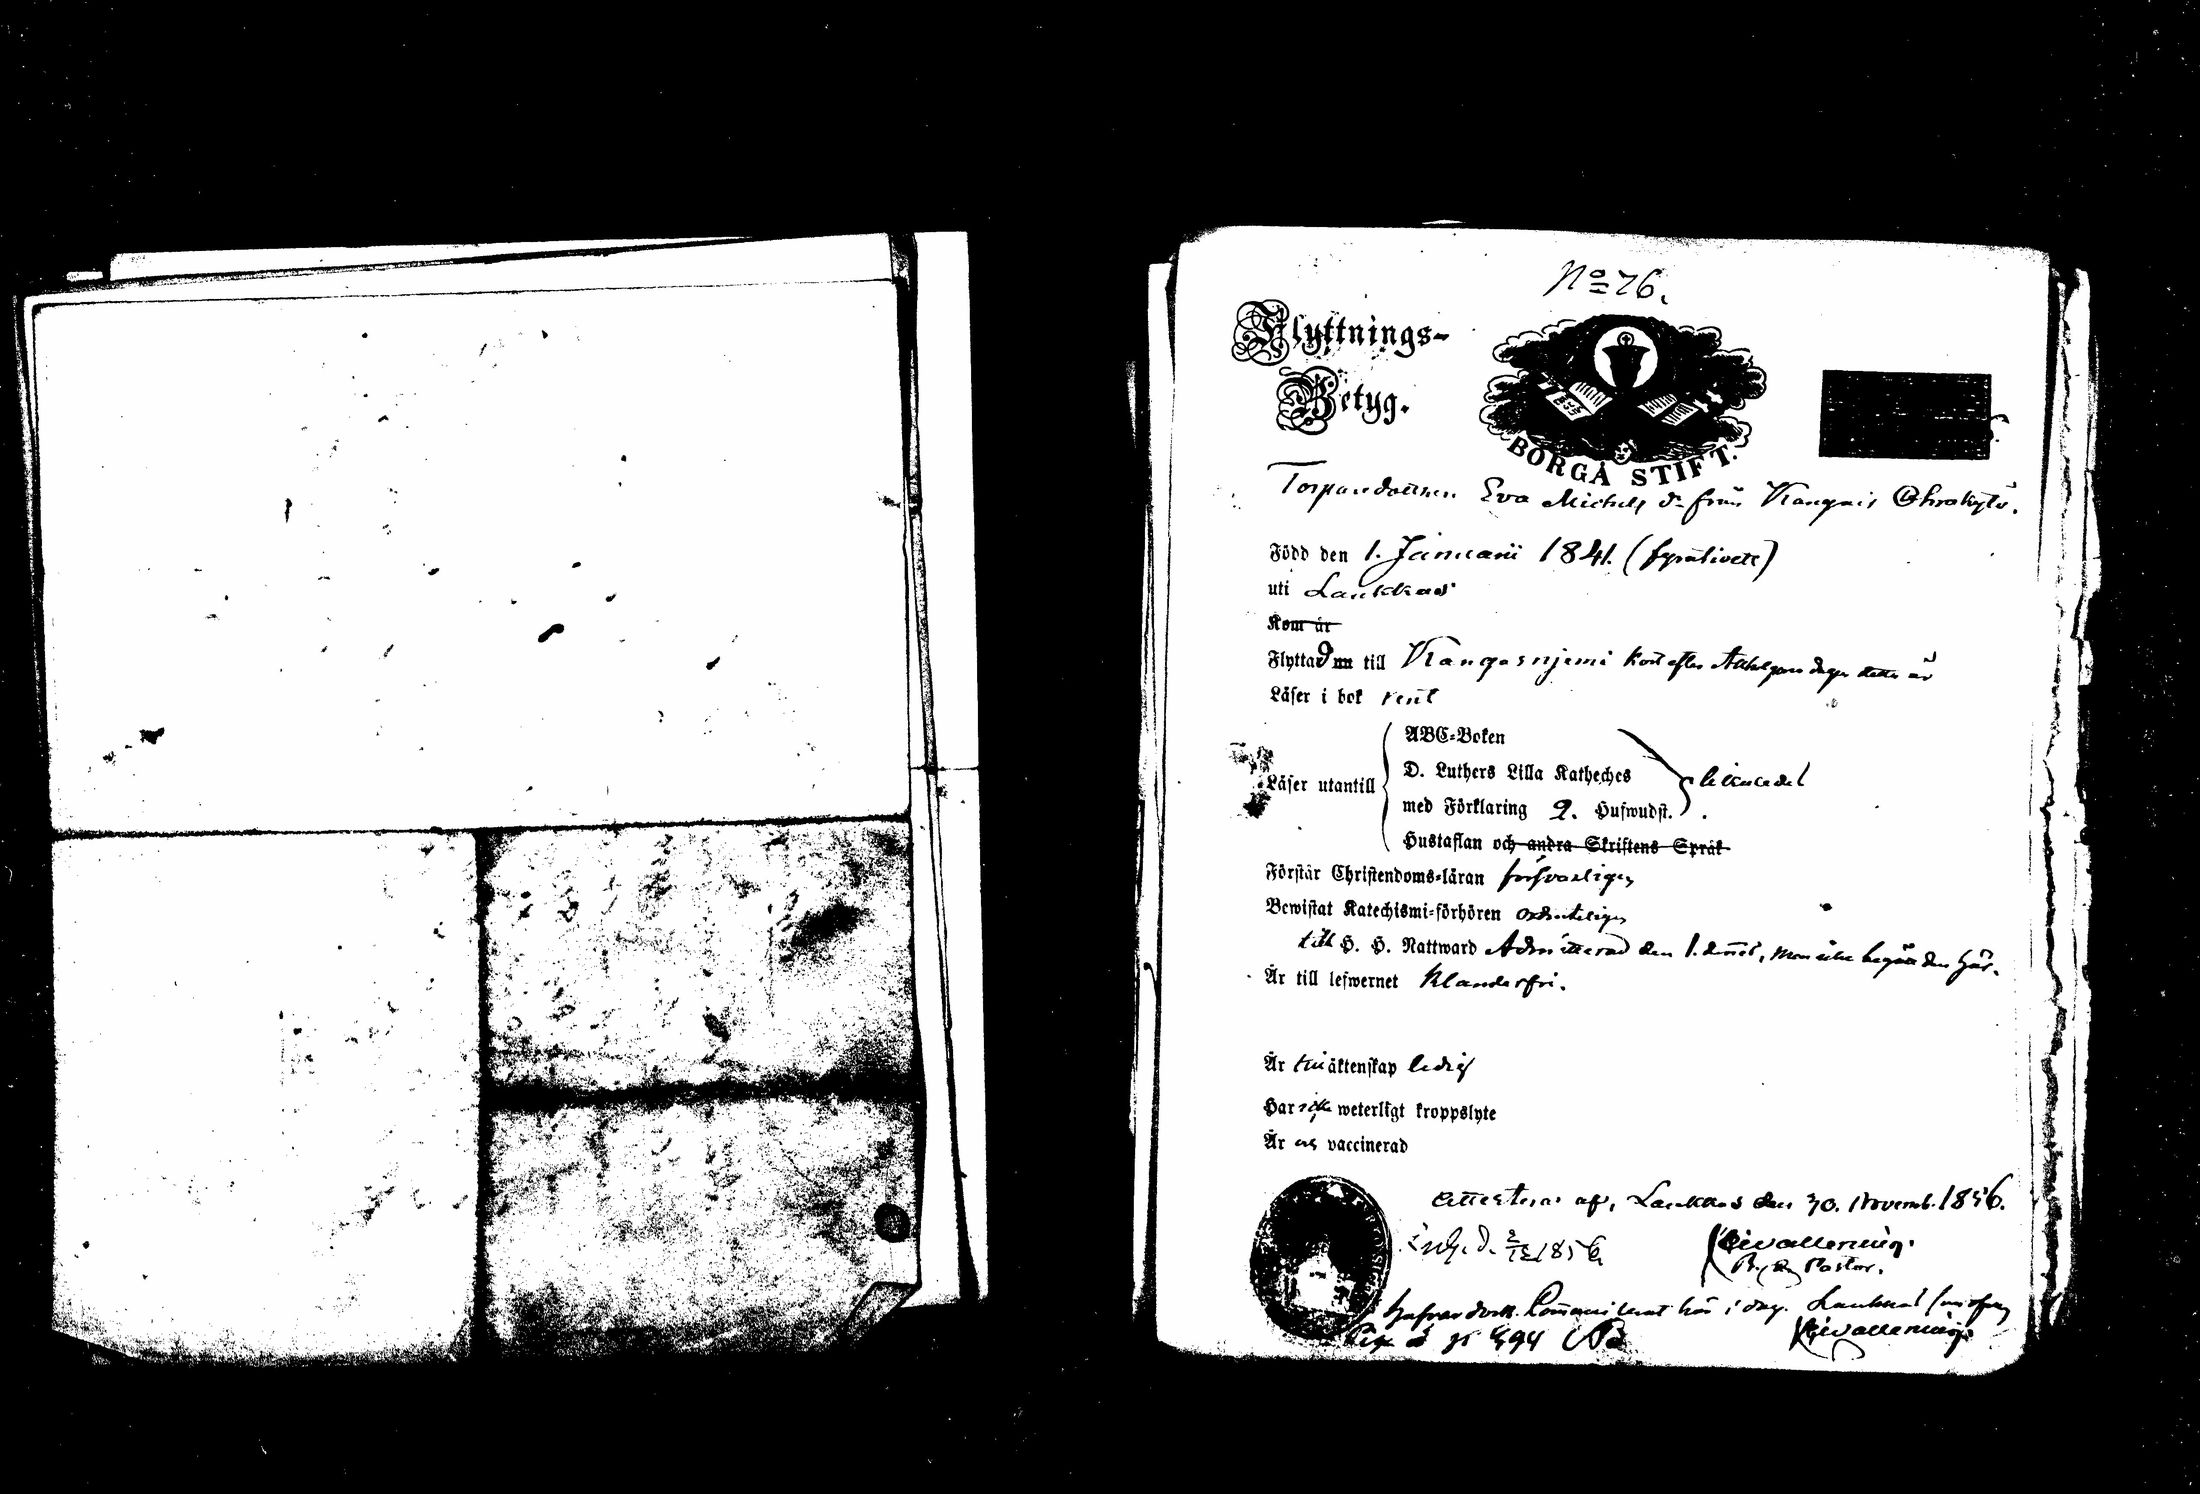 No 76.
Flyttnings-
Betyg.
BORGÅ STIFT.
Torparedottren Eva Michels dr från Kangais Ohrakylä.
Född den 1. Januarii 1841. (fyrationett)
uti Laukkas
Kom år
Flyttad nn till Kangasnjemi kort efter dagen detta år
Läser i bok rent
ABC-Boken
D. Luthers Lilla Katheches
Läser utantill
med Förklaring 2. Hufwudst.
Hustaflan och andra Skriftens Språk
Förstår Christendoms-läran försvarligen
Bewistat Katechismi-förhören ordenteligen
till H. H. Nattward Admitterad den 1. dennes, men icke begått den här.
Är till lefwernet Klanderfri.
Är till äktenskap ledig
Har icke weterligt kroppslyte
Är vaccinerad
Attesterar af, Laukkas den 30. Novemb. 1856.
1856
Pastor.
här i dag. Laukkas
494